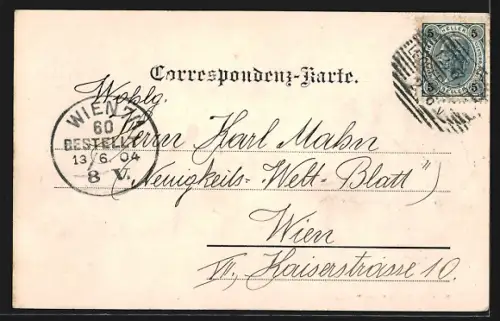 Correspondenz-Karte.
5 HELLER 5
Wohlg.
Herrn Karl Mahn
(„Neuigkeits-Welt-Blatt”)
Wien
VII., Kaiserstrasse 10.
WIEN
60
BESTELLT
13 6 04
8 V.